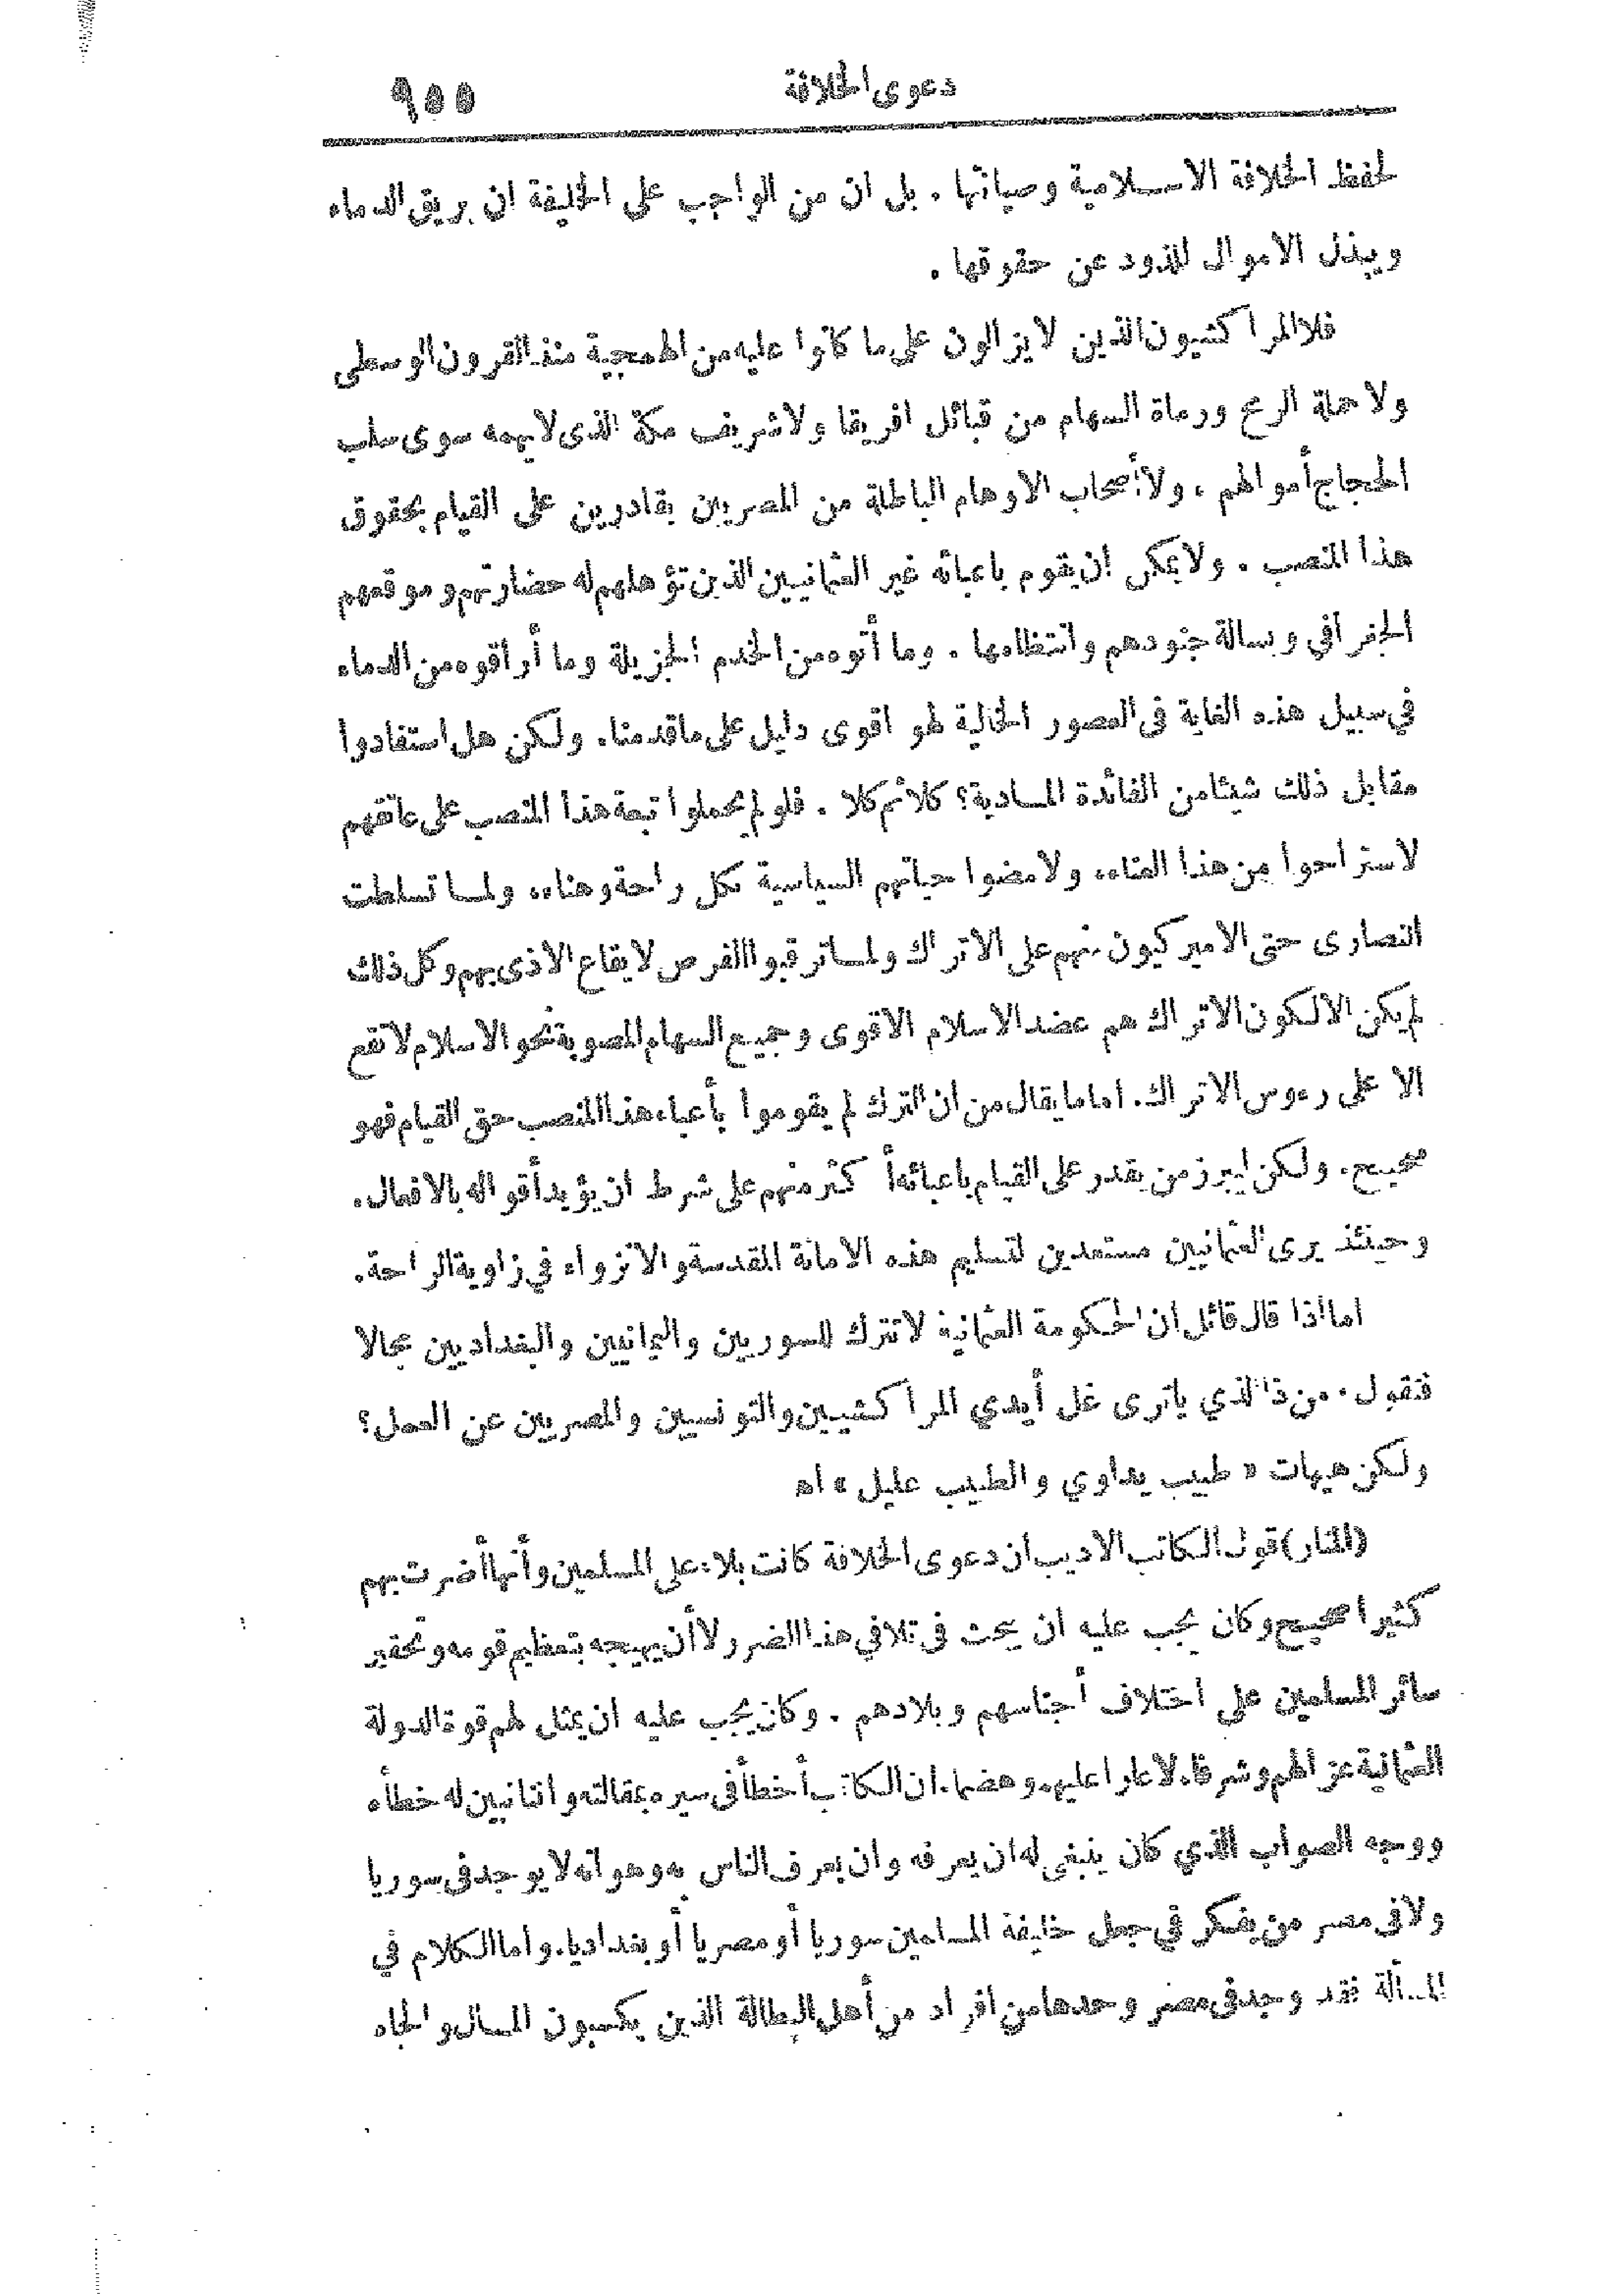 دعوى الخلافة ٩٥٥
لحفظ الخلافة الاسلامية وصيانتها . بل ان من الواجب على الخليفة ان يريق الدماء
ويبذل الاموال للذود عن حقوقها .
فلا المراكشيون الذين لا يزالون على ما كانوا عليه من الهمجية منذ القرون الوسطى
ولا حملة الرمح ورماة السهام من قبائل افريقا ولا شريف مكة الذى لا يهمه سوى سلب
الحجاج أموالهم ، ولا أصحاب الاوهام الباطلة من المصريين بقادرين على القيام بحقوق
هذا المنصب . ولا يمكن ان يقوم باعبائه غير العثمانيين الذين تؤهلهم له حضارتهم وموقعهم
الجغرافي وبسالة جنودهم وانتظامها . وما أتوه من الخدم الجزيلة وما أراقوه من الدماء
في سبيل هذه الغاية فى العصور الخالية لهو اقوى دليل على ما قدمنا . ولكن هل استفادوا
مقابل ذلك شيئا من الفائدة المادية؟ كلا ثم كلا . فلو لم يحملوا تبعة هذا المنصب على عاتقهم
لاستراحوا من هذا العناء ، ولامضوا حياتهم السياسية بكل راحة وهناء ، ولما تسلطت
النصارى حتى الاميركيون منهم على الاتراك ولما ترقبوا الفرص لايقاع الاذى بهم وكل ذلك
لم يكن الا لكون الاتراك هم عضد الاسلام الاقوى وجميع السهام المصوبة نحو الاسلام لا تقع
الا على رءوس الاتراك . اما ما يقال من ان الترك لم يقوموا بأعباء هذا المنصب حق القيام فهو
صحيح . ولكن ليبرز من يقدر على القيام باعبائه أكثر منهم على شرط ان يؤيد أقواله بالافعال .
وحينئذ يرى العثمانيين مستعدين لتسليم هذه الامانة المقدسة والانزواء في زاوية الراحة .
اما اذا قال قائل ان الحكومة العثمانية لا تترك للسوريين واليمانيين والبغداديين مجالا
فنقول . من ذا الذي ياترى غل أيدي المراكشيين والتونسيين والمصريين عن العمل ؟
ولكن هيهات « طبيب يداوي والطبيب عليل » اه
(المنار) قول الكاتب الاديب ان دعوى الخلافة كانت بلاء على المسلمين وأنها أضرت بهم
كثيرا صحيح وكان يجب عليه ان يبحث فى تلافي هذا الضرر لا أن يهيجه بتعظيم قومه وتحقير
سائر المسلمين على اختلاف أجناسهم وبلادهم . وكان يجب عليه ان يمثل لهم قوة الدولة
العثمانية عزا لهم وشرفا ، لا عارا عليهم وهضما . ان الكاتب أخطأ فى سيره بمقالته واننا نبين له خطأه
ووجه الصواب الذي كان ينبغي له ان يعرفه وان يعرف الناس به وهو انه لا يوجد فى سوريا
ولا فى مصر من يفكر في جعل خليفة المسلمين سوريا أو مصريا أو بغداديا . واما الكلام في
المسألة فقد وجد فى مصر وحدها من افراد من أهل البطالة الذين يكسبون المال والجاه